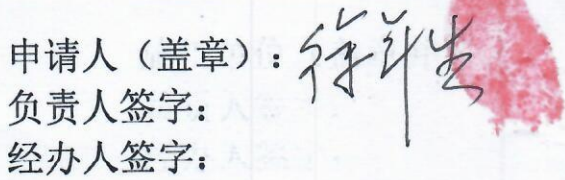 申请人（盖章）：徐斗生
负责人签字：
经办人签字：